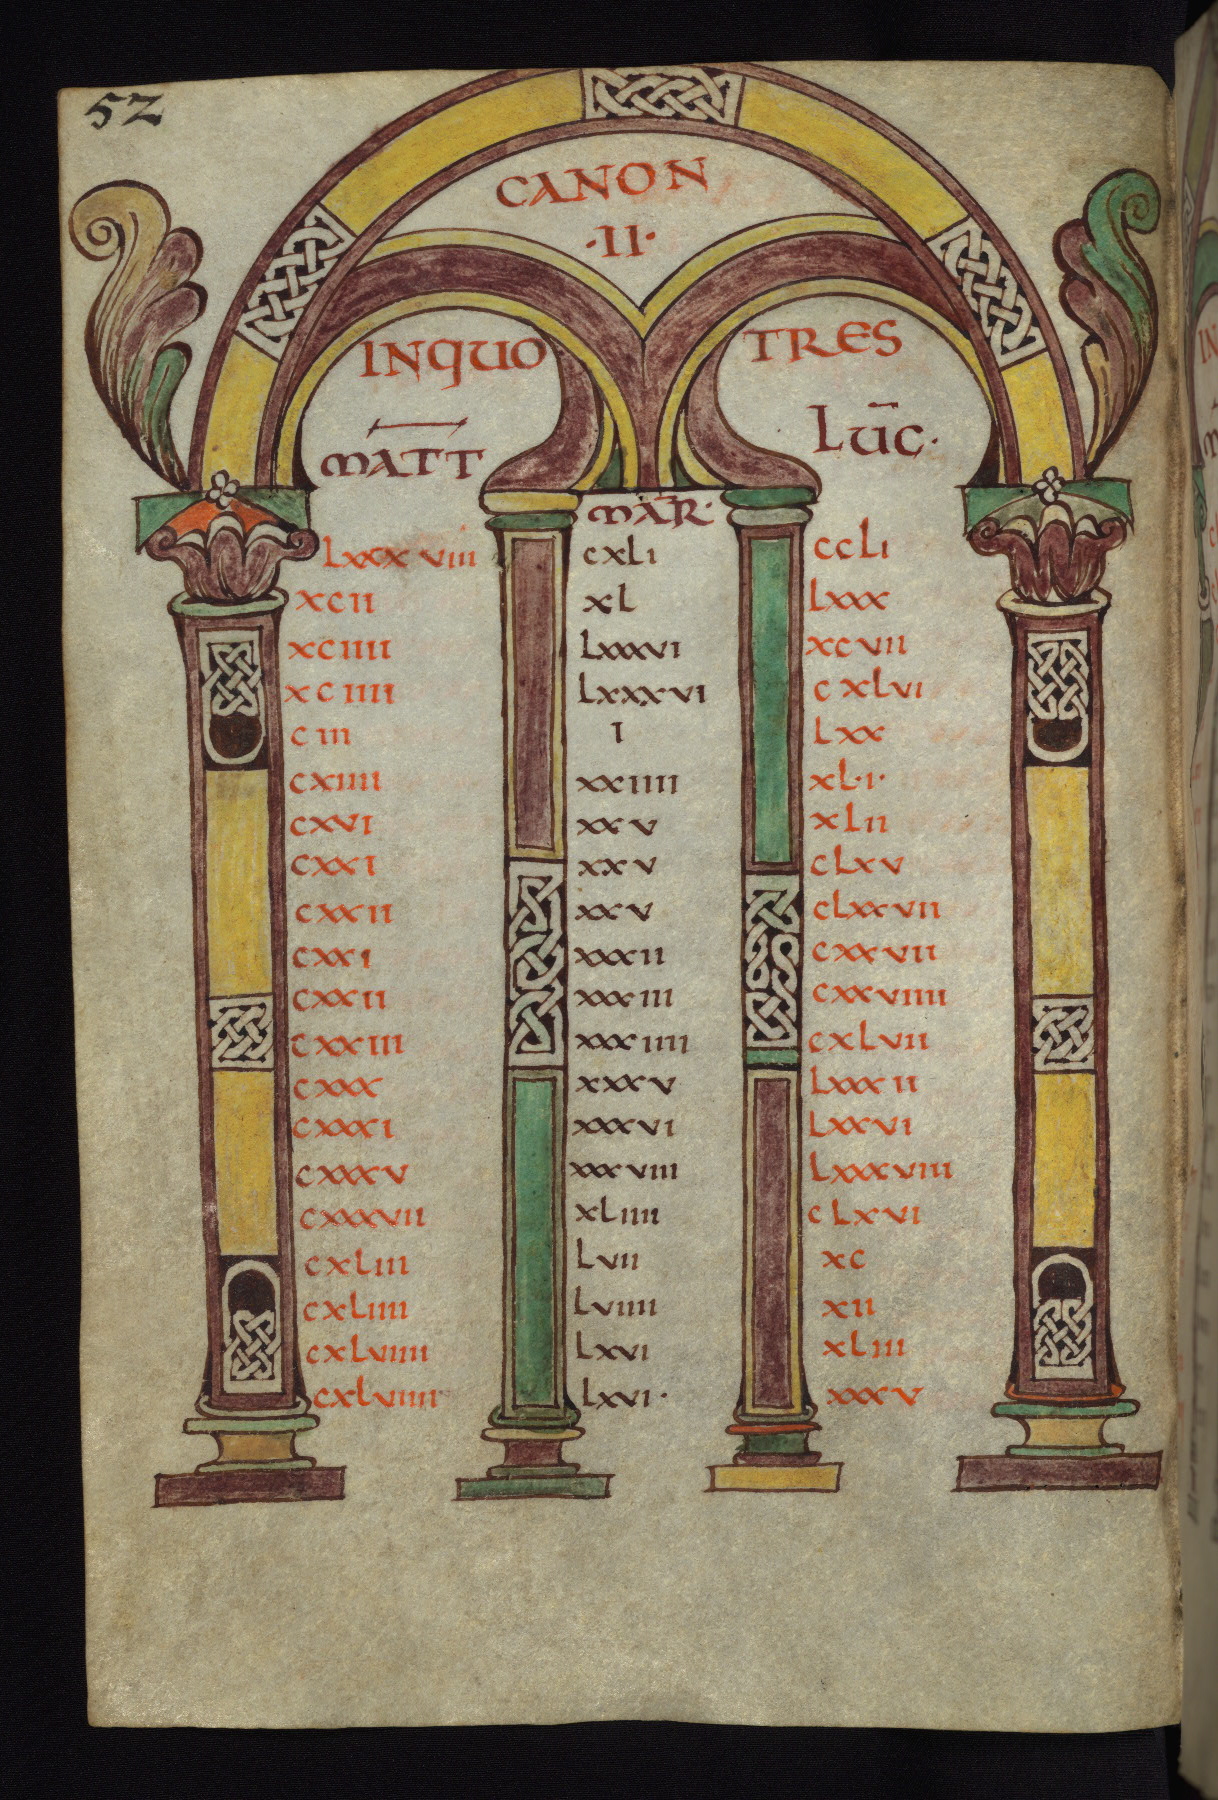 52
CANON
·II·
INQUO TRES
MATT MAR· LUC·
LXXXVIII CXLI CCLI
XCII XL LXXX
XCIIII LXXXVI XCVII
XCIIII LXXXVI CXLVI
CIII I LXX
CXIIII XXIIII XL·I·
CXVI XXV XLII
CXXI XXV CLXV
CXXII XXV CLXXVII
CXXI XXXII CXXVII
CXXII XXXIII CXXVIIII
CXXIII XXXIIII CXLVII
CXXX XXXV LXXXII
CXXXI XXXVI LXXVI
CXXXV XXXVIII LXXXVIII
CXXXVII XLIIII CLXVI
CXLIII LVII XC
CXLIIII LVIIII XII
CXLVIIII LXVI XLIII
CXLVIIII LXVI· XXXV